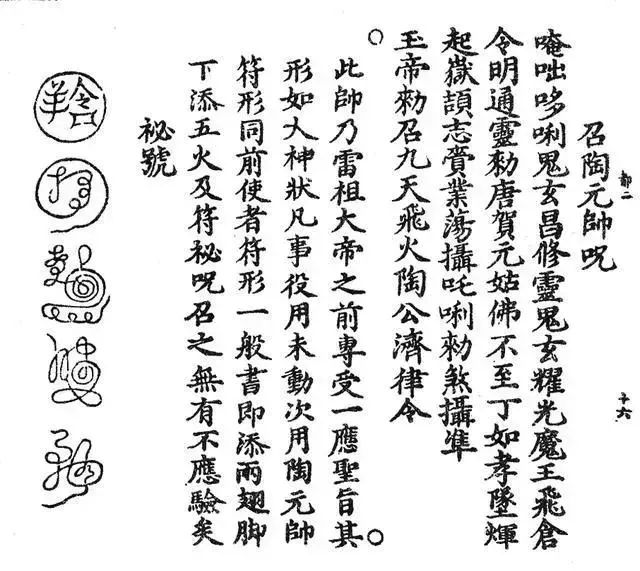 部二
十六
召陶元帥呪
唵咄哆唎鬼玄昌修靈鬼玄耀光魔王飛倉
令明通靈勑唐賀元姑佛不至丁如孝墜煇
起嶽頡志賫業蕩攝吒唎勑煞攝準
玉帝勑召九天飛火陶公濟律令
此帥乃雷祖大帝之前專受一應聖旨其
形如大神狀凡事役用未動次用陶元帥
符形同前使者符形一般書即添兩翅脚
下添五火及符祕呪召之無有不應驗矣
祕號